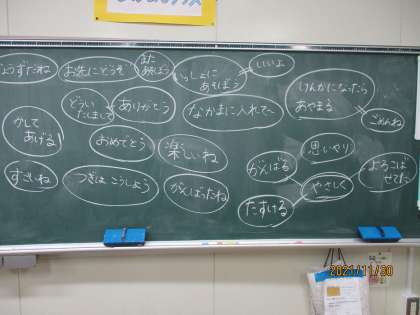 お先にどうぞ
また
あそぼう
いっしょに
あそぼう
いいよ
けんかになったら
あやまる
ごめんね
どうい
たしまして
ありがとう
なかまに入れて〜
かして
あげる!
おめでとう
楽しいね
がんばる
思いやり
よろこば
せてた〜
すごいね
つぎは こうしよう
がんばったね
やさしく
たすける
2021/11/30